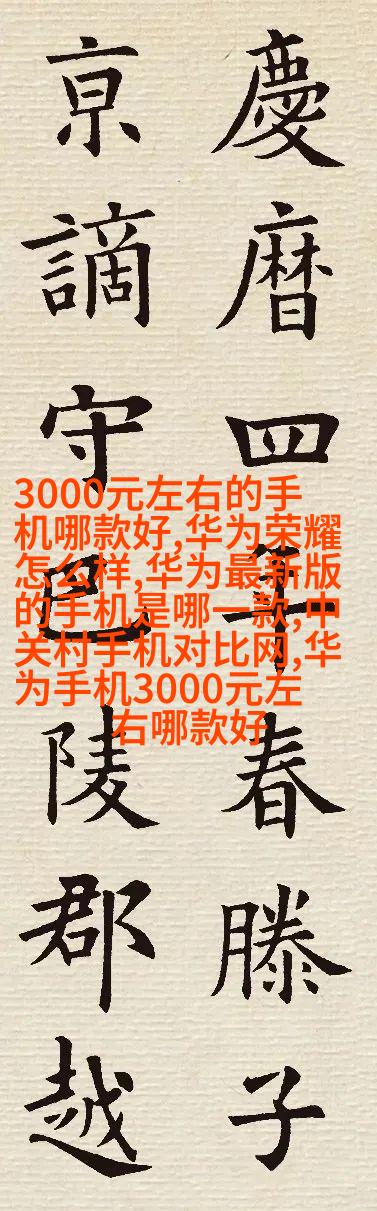 慶暦四年春滕子
亰謫守巴陵郡越
3000元左右的手
机哪款好,华为荣耀
怎么样,华为最新版
的手机是哪一款,中
关村手机对比网,华
为手机3000元左
右哪款好